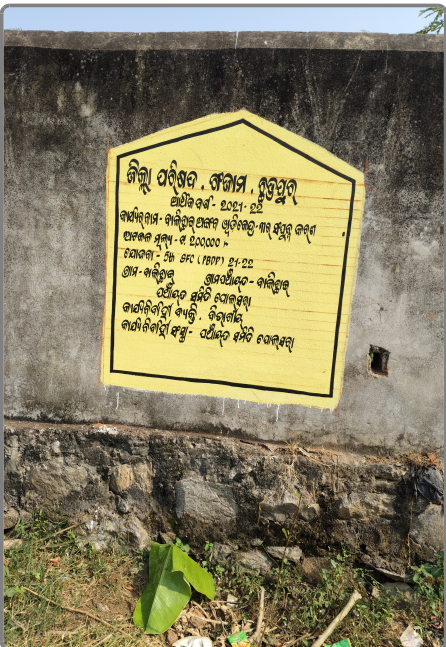 ଜିଲ୍ଲା ପରିଷଦ, ଗଞ୍ଜାମ, ଛତ୍ରପୁର
ଆର୍ଥିକ ବର୍ଷ - 2021-22
କାର୍ଯ୍ୟର ନାମ - ବାଲିଛାଇ ଅଙ୍ଗନ ୱାଡିକେନ୍ଦ୍ର-୩ର ସଂପୂର୍ଣ୍ଣ କରଣ
ଅଟକଳ ମୂଲ୍ୟ - ଟ. 2,00,000/-
ଯୋଜନା - 5th SFC (PBDF) 21-22
ଗ୍ରାମ - ବାଲିଛାଇ ଗ୍ରାମପଞ୍ଚାୟତ - ବାଲିଛାଇ
ପଞ୍ଚାୟତ ସମିତି ପୋଲସରା
କାର୍ଯ୍ୟନିର୍ବାହୀ ବ୍ୟକ୍ତି - ବିଭାଗୀୟ
କାର୍ଯ୍ୟନିର୍ବାହୀ ସଂସ୍ଥା - ପଞ୍ଚାୟତ ସମିତି ପୋଲସରା